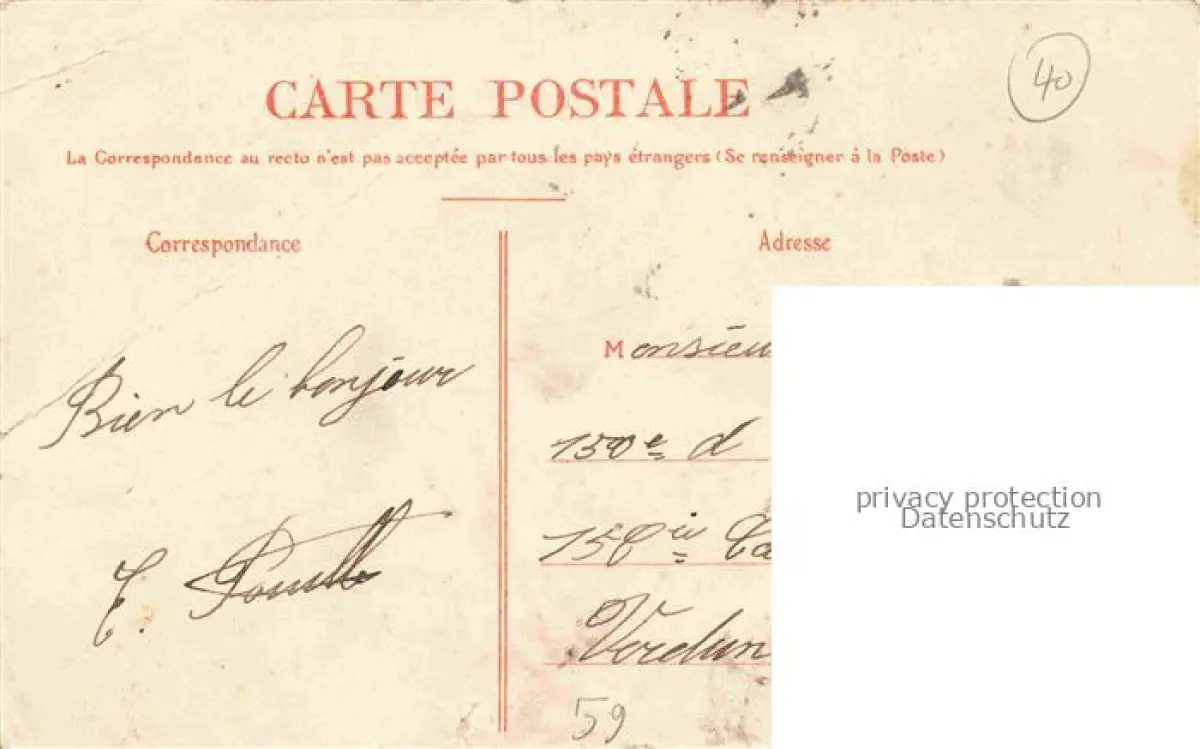 40
CARTE POSTALE
La Correspondance au recto n'est pas acceptée par tous les pays étrangers (Se renseigner à la Poste)
Correspondance
Adresse
Bien le bonjour
Monsieu
150e d
Verdun
59
privacy protection
Datenschutz